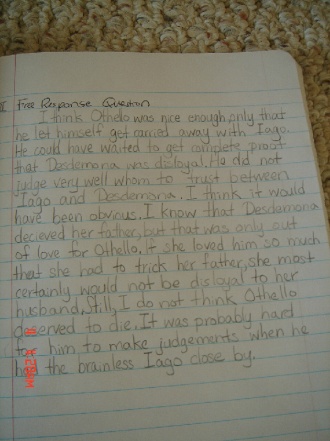 II Free Response Question
I think Othello was nice enough, only that
he let himself get carried away with Iago.
He could have waited to get complete proof
that Desdemona was disloyal. He did not
judge very well whom to trust between
Iago and Desdemona. I think it would
have been obvious. I know that Desdemona
decieved her father, but that was only out
of love for Othello. If she loved him so much
that she had to trick her father, she most
certainly would not be disloyal to her
husband. Still, I do not think Othello
deserved to die. It was probably hard
for him to make judgements when he
had the brainless Iago close by.